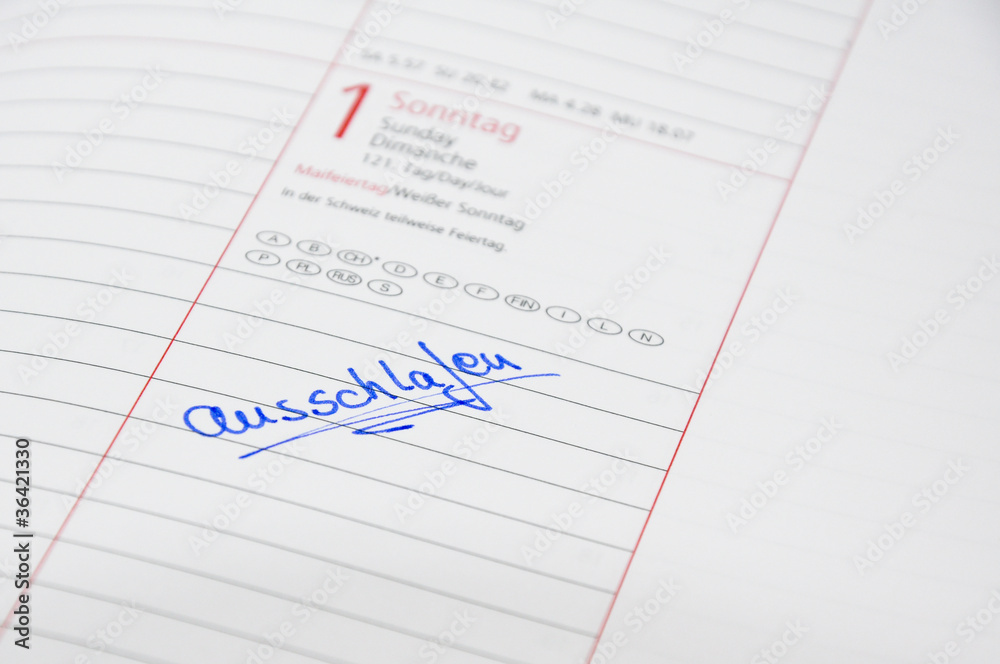 SA 5.57 SU 20.42 MA 4.28 MU 18.07
1 Sonntag
Sunday
Dimanche
121. Tag/Day/Jour
Maifeiertag/Weißer Sonntag
In der Schweiz teilweise Feiertag.
A B CH* D E F FIN I L N
P PL RUS S
ausschlafen
Adobe Stock | #36421330